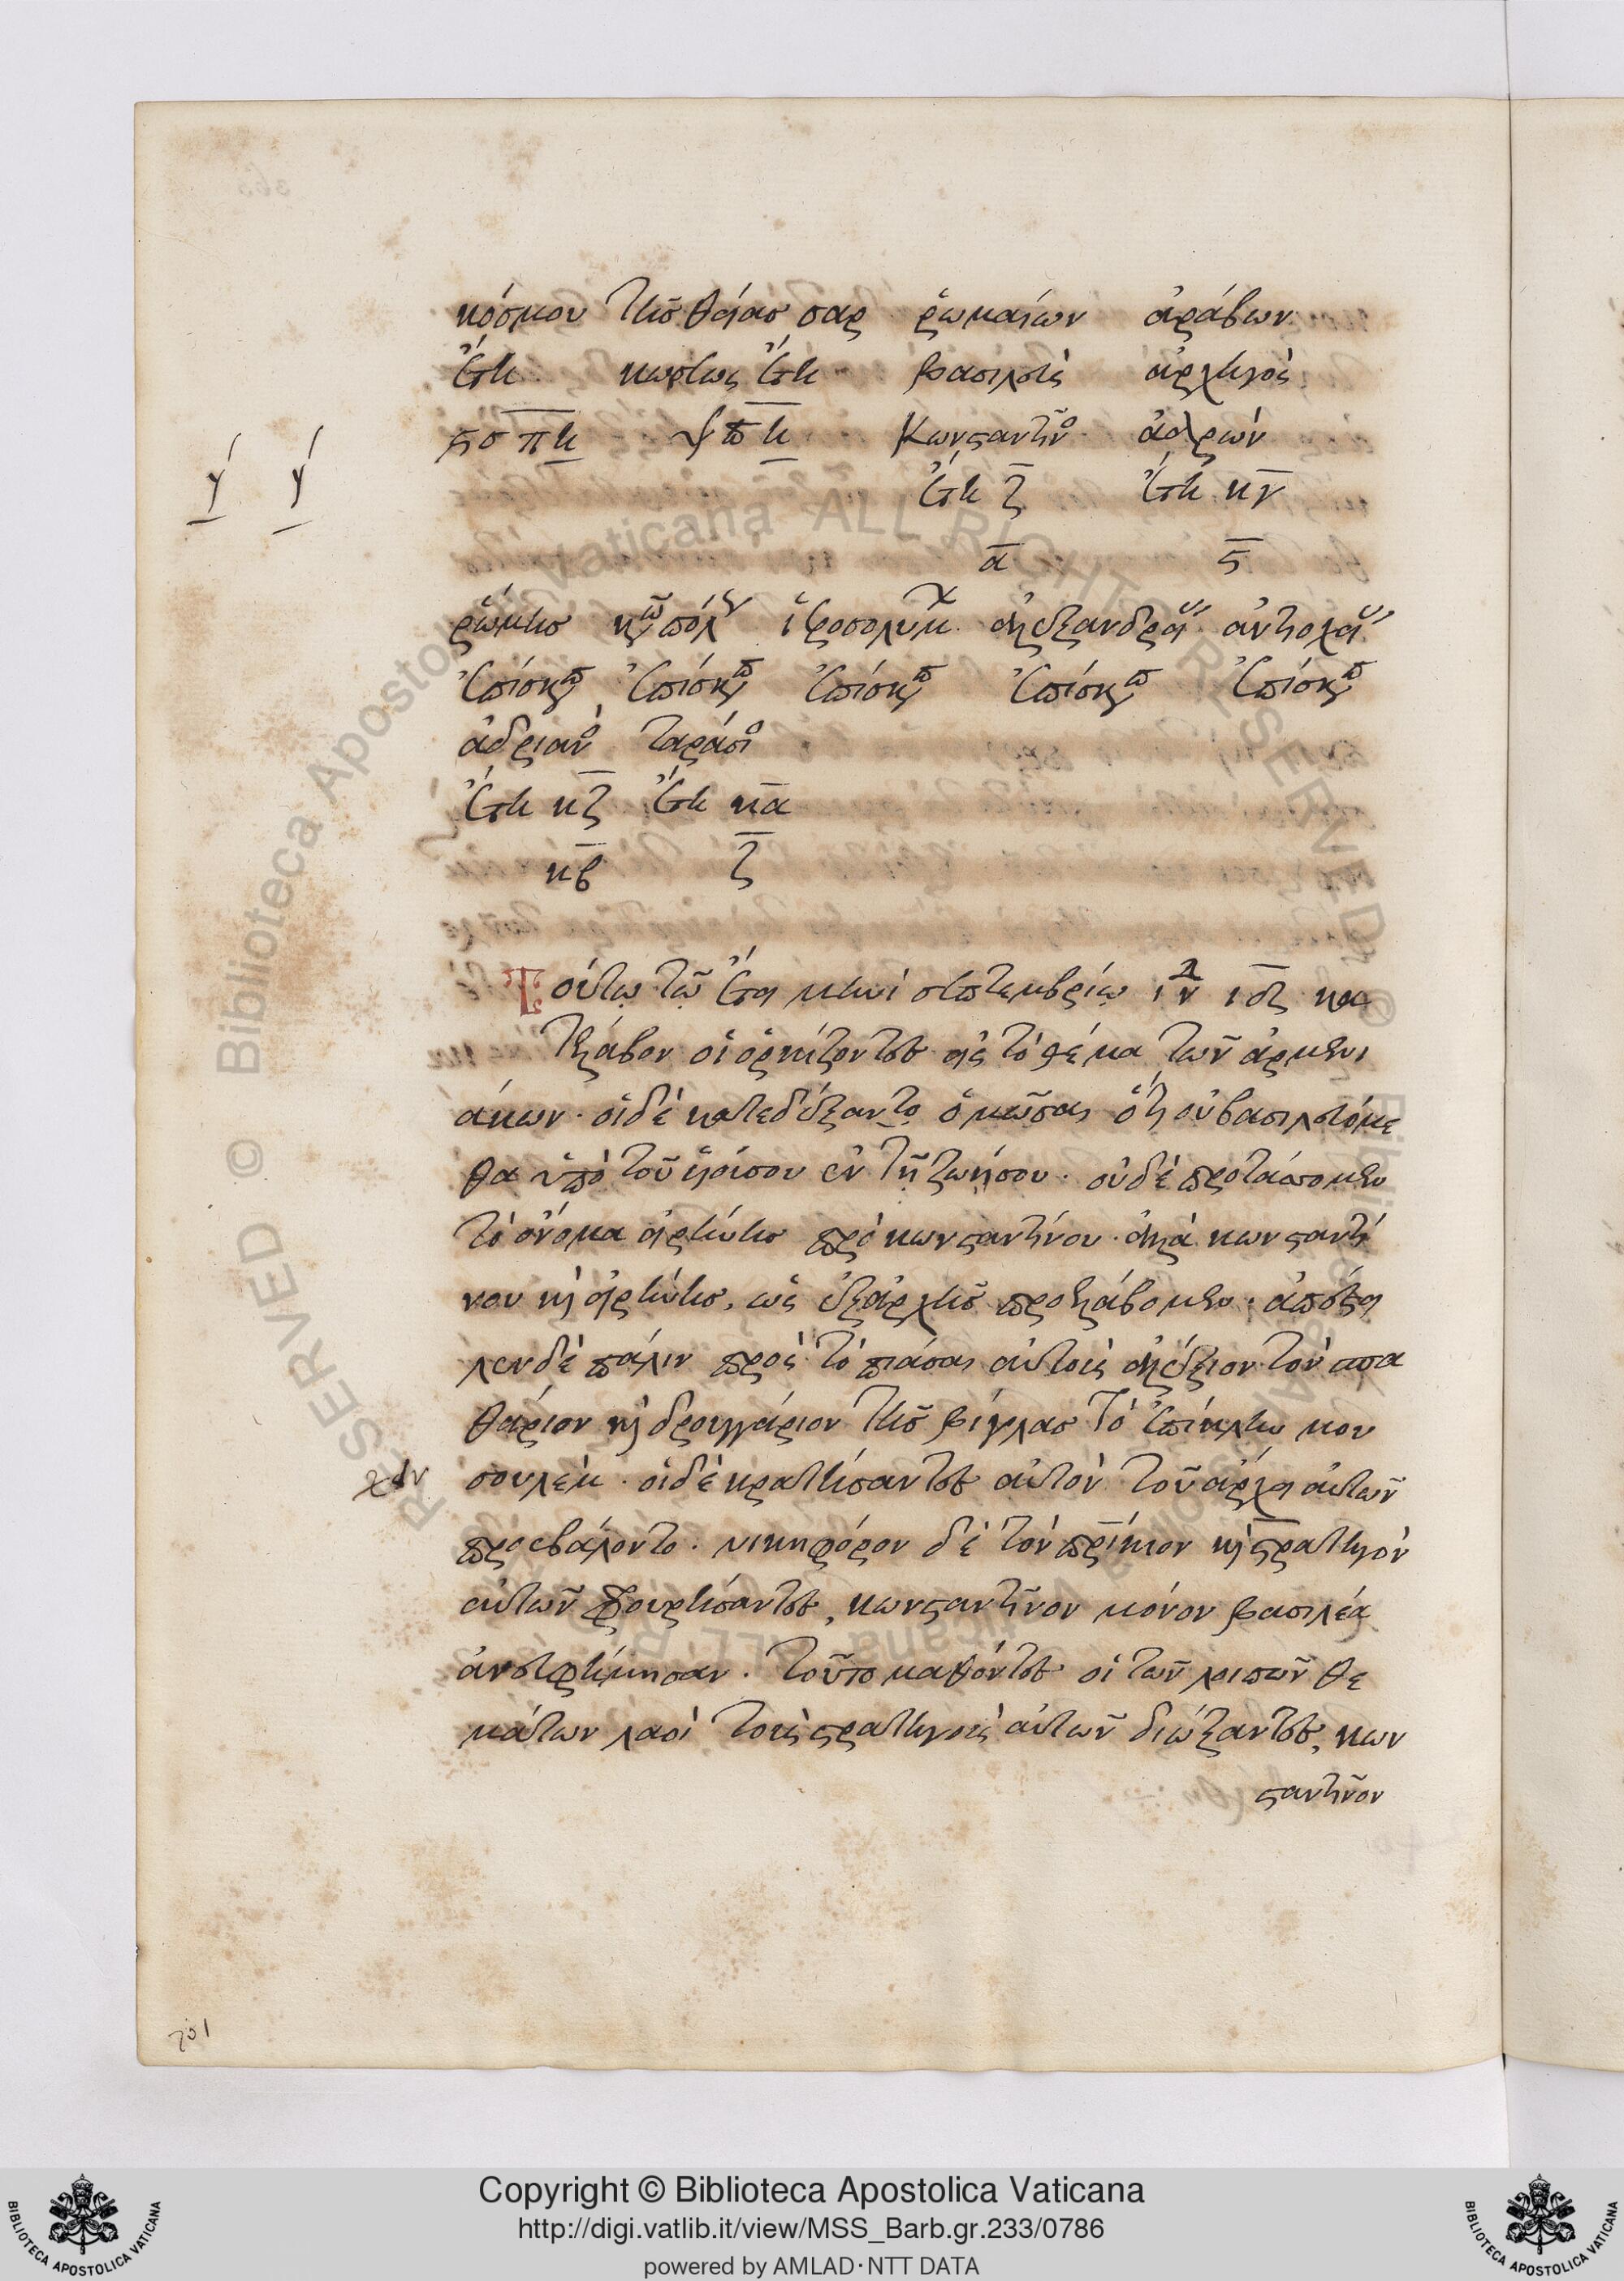 κόσμου τῆς θείας σαρ ῥωμαίων ἀράβων
ἔτη κώσεως ἔτη βασιλεὺς ἀρχηγὸς
͵ϛσπη ψπη κωνσταντῖνο ἀαρών
ἔτη ζ ἔτη κγ
α ϛ
γ γ
ῥώμης κπόλ ἱεροσολύμ ἀλεξανδρεί ἀντιοχεί
ἐπίσκοπ ἐπίσκοπ ἐπίσκοπ ἐπίσκοπ ἐπίσκοπ
ἀδριανὸ ταράσιο
ἔτη κζ ἔτη κα
κβ ζ
Τούτῳ τῷ ἔτει μηνὶ σεπτεμβρίῳ ἰνδ ιδ κα
τέλαβον οἱ ὁρκίζοντες εἰς τὸ θέμα τῶν ἀρμενι
άκων· οἱ δὲ κατεδέξαντο ὀμῶσαι ὅτι οὐ βασιλευόμε
θα ὑπὸ τοῦ υἱοῦ σου ἐν τῇ ζωῇ σου· οὐδὲ προτάσσομεν
τὸ ὄνομα εἰρήνης πρὸ κωνσταντίνου· ἀλλὰ κωνσταντί
νου καὶ εἰρήνης, ὡς ἐξ ἀρχῆς προελάβομεν· ἀπέστει
λεν δὲ πάλιν πρὸς τὸ πιάσαι αὐτοὺς ἀλέξιον τὸν σπα
θάριον καὶ δρουγγάριον τῆς βίγλας τὸ ἐπίκλην μου
σουλὲμ· οἱ δὲ κρατήσαντες αὐτὸν τοῦ ἄρχειν αὐτῶν
προεβάλοντο· νικηφόρον δὲ τὸν πρίκιον καὶ στρατηγὸν
αὐτῶν φρουρήσαντες, κωνσταντῖνον μόνον βασιλέα
ἀνευφήμησαν. τοῦτο μαθόντες οἱ τῶν λοιπῶν θε
μάτων λαοὶ τοὺς στρατηγοὺς αὐτῶν διώξαντες, κων
σταντῖνον
201
Copyright © Biblioteca Apostolica Vaticana
http://digi.vatlib.it/view/MSS_Barb.gr.233/0786
powered by AMLAD·NTT DATA
BIBLIOTECA APOSTOLICA VATICANA
BIBLIOTECA APOSTOLICA VATICANA